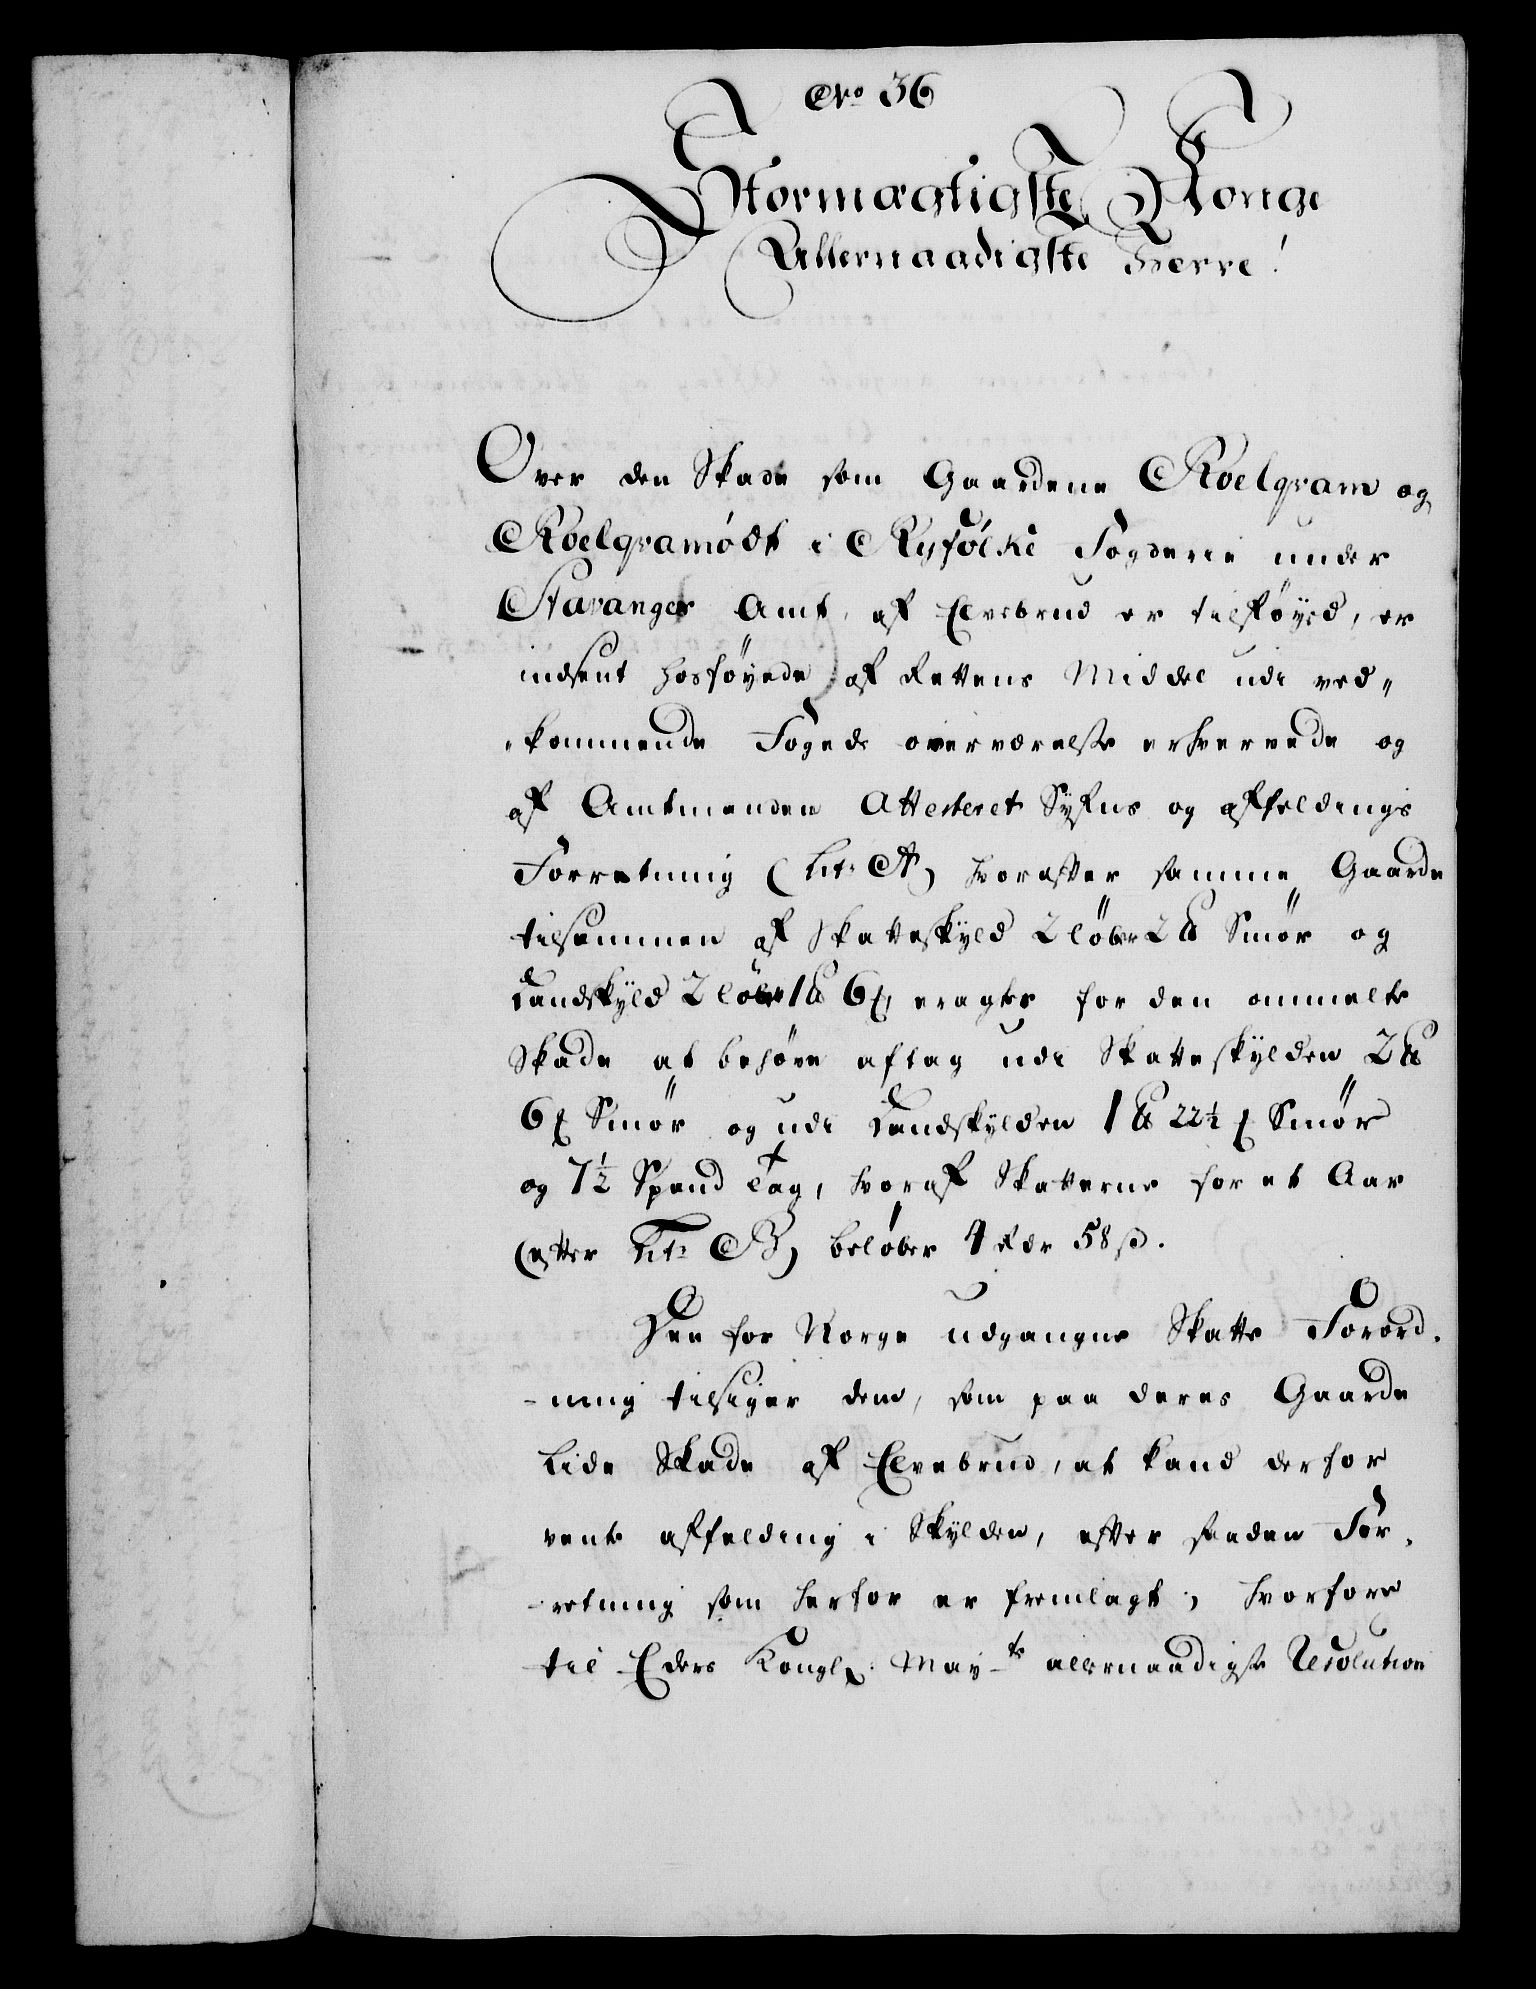 No 36
Stormægtigste Konge
Allernaadigste Herre!
Over den Skade som Gaardene Roelqvam og
Roelqvamødt i Ryfölke Fogderie under
Stavanger Amt, af Elvebrud er tilföyed, er
indsent hosföyede af Rettens Middel udi ved„
„kommende Fogeds overværelse erhvervede og
af Amtmanden Attesteret Syfns og affeldings
Forretning (Lit: A) hvorefter samme Gaarde
tilsammen af Skatteskyld 2 löber 2 ℔ Smör og
Landskyld 2 löber 1 ℔ 6 ꝑ, eragtes for den ommelte
Skade at behöve aftag udi Skatteskylden 2 ℔
6 ꝑ Smör og udi Landskylden 1 ℔ 22½ ꝑ Smör
og 7½ Spand Tag, hvoraf Skatterne for et Aar
(efter Lit: B) belöber 4 Rdr 58 ß.
Den for Norge udgangne Skatte Forord-
-ning tilsiger dem, som paa deres Gaarde
Lide Skade af Elvebrud, at kand derfor
vente affelding i Skylden, efter saadan For-
-retning som herfor er fremlagt; hvorfore
til Eders Kongl: May-ts allernaadigste Resolution